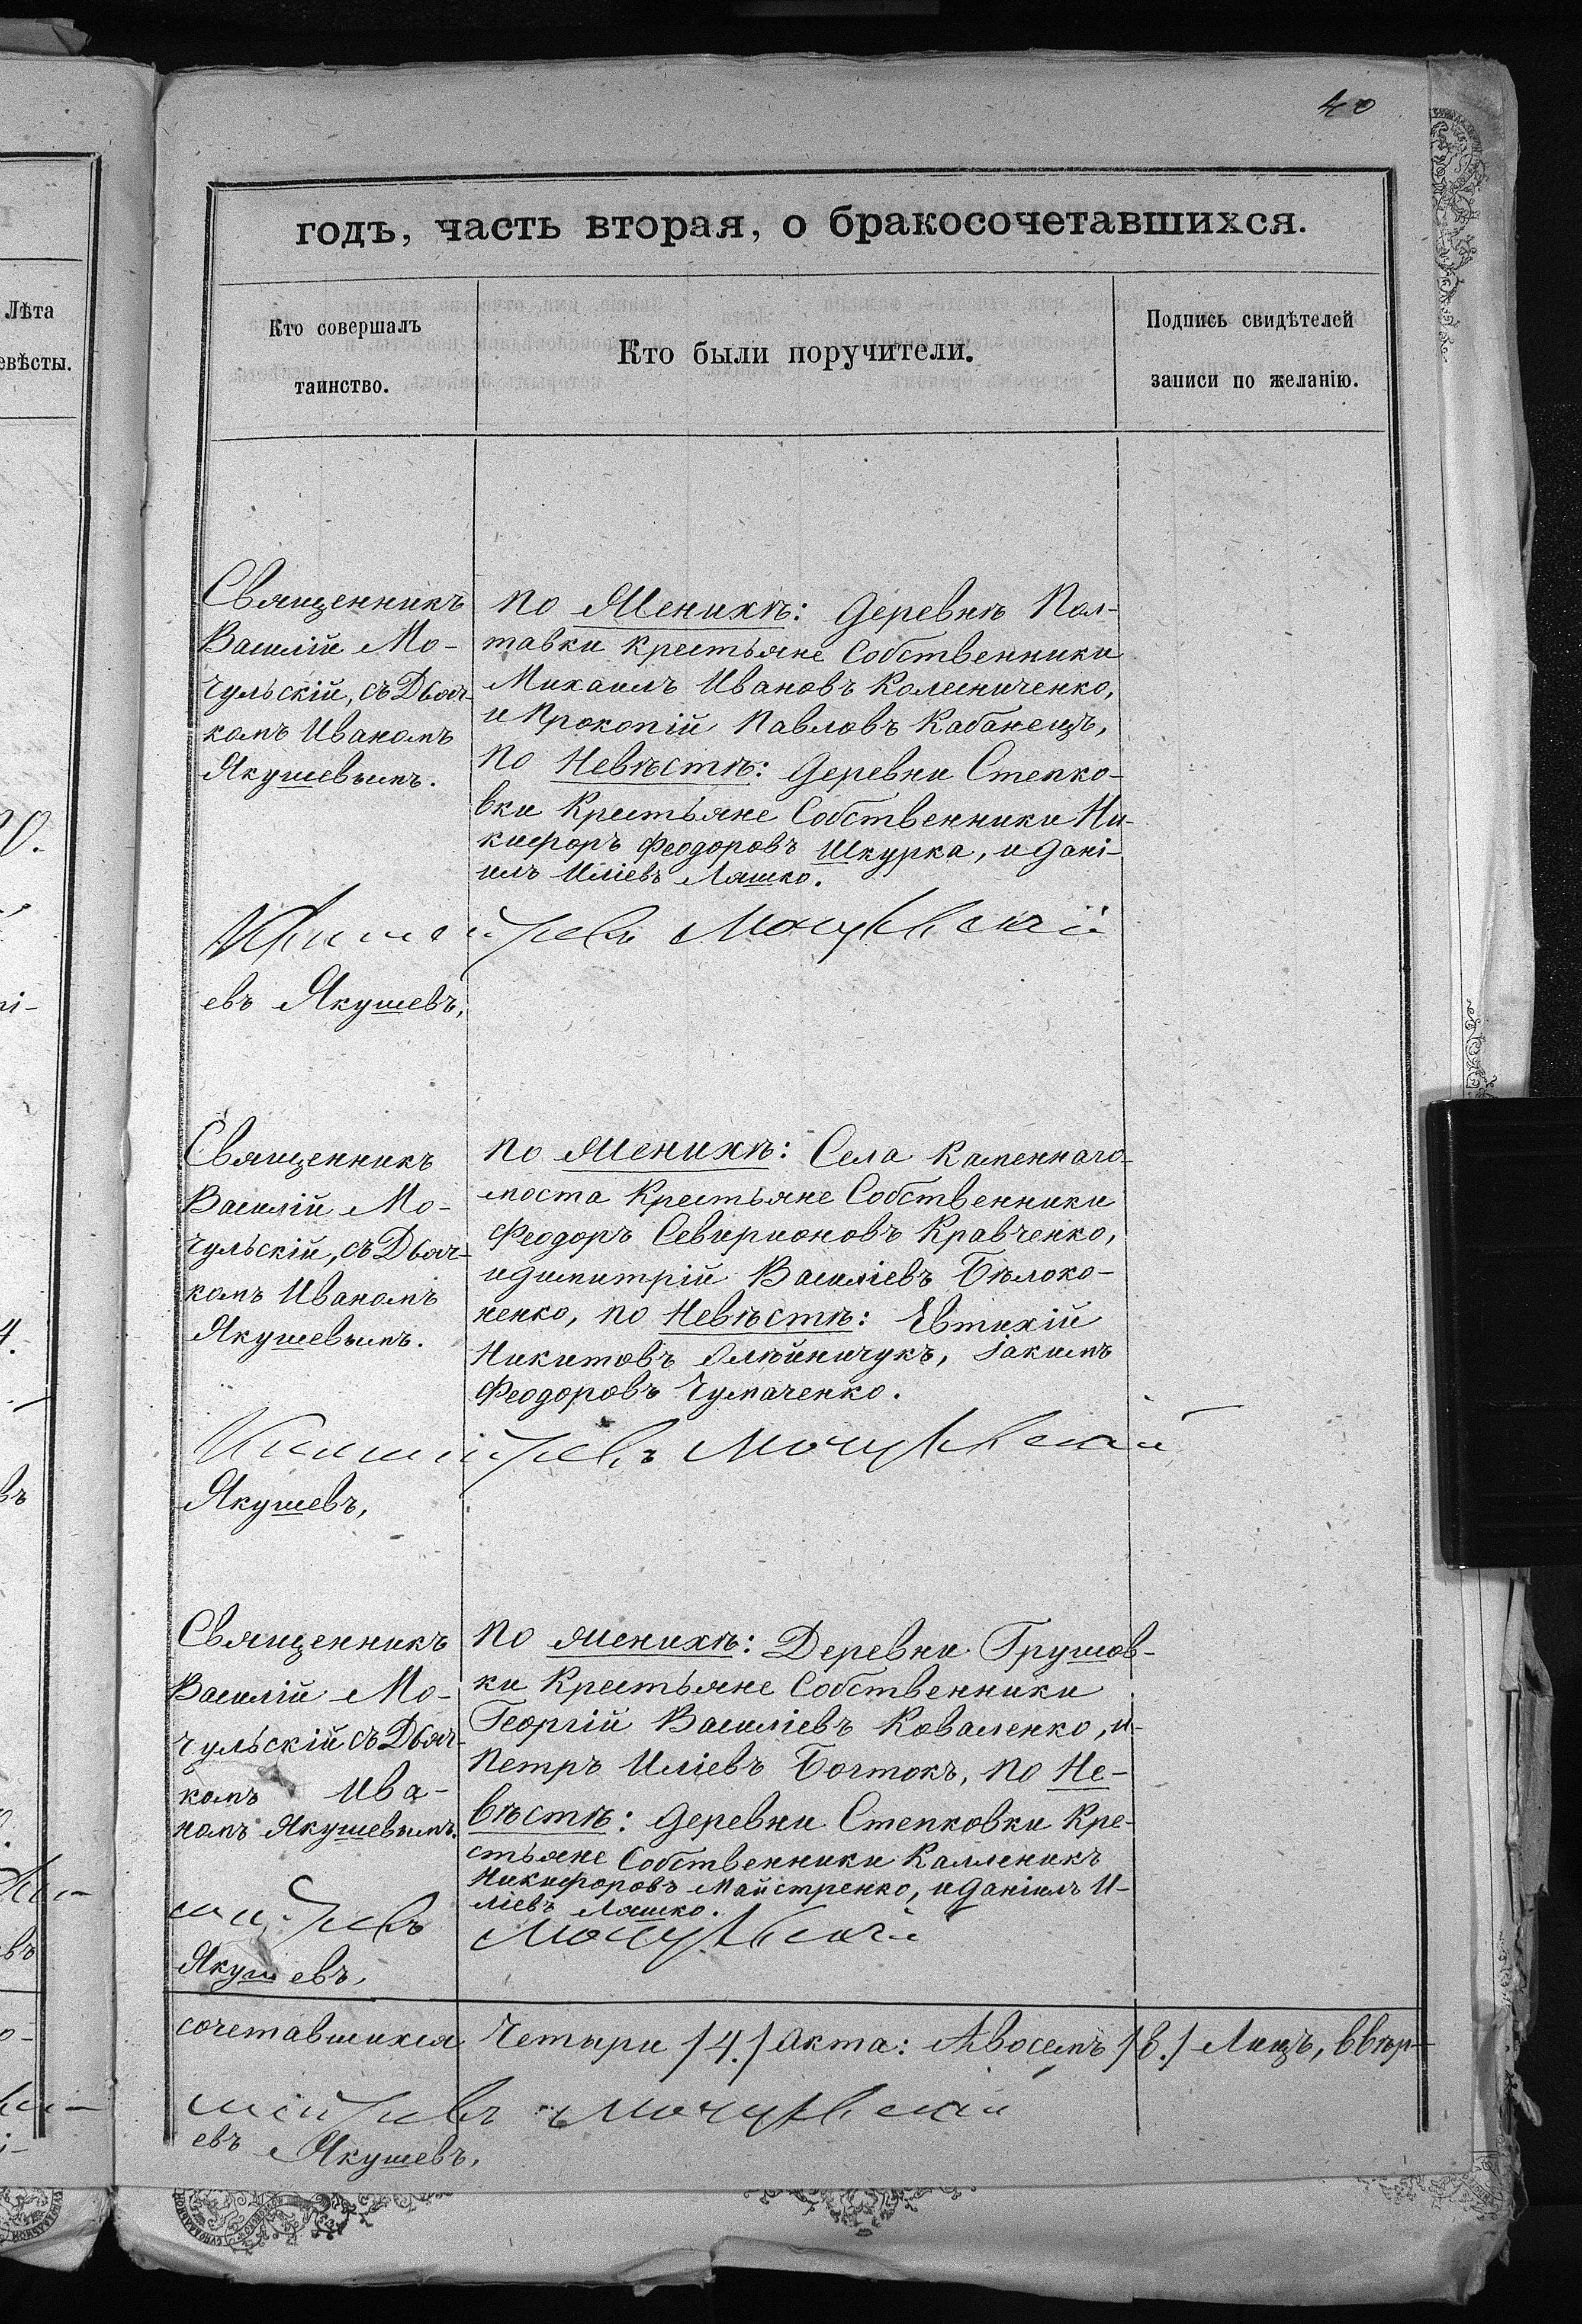 40
годъ, часть вторая, о бракосочетавшихся.
Лѣта
евѣсты.
Кто совершалъ
таинство.
Кто были поручители.
Подпись свидѣтелей
записи по желанію.
Священникъ
Василій Мо-
чульскій, съ Дьяч-
комъ Иваномъ
Якушевымъ.
По Женихѣ: Деревнѣ Пол-
тавки Крестьяне Собственники
Михаилъ Ивановъ Колесниченко,
и Прокопій Павловъ Кабанецъ,
По Невѣстѣ: Деревни Степко-
вки Крестьяне Собственники Ни-
кифоръ Феодоровъ Шкурка, и Дані-
илъ Иліевъ Ляшко.
Мочульскій
евъ Якушевъ,
Священникъ
Василій Мо-
чульскій, съ Дьяч-
комъ Иваномъ
Якушевымъ.
По Женихѣ: Села Каменнаго-
моста Крестьяне Собственники
Феодоръ Севирионовъ Кравченко,
и Димитрій Василіевъ Бѣлоко-
ненко, По Невѣстѣ: Евтихій
Никитовъ Олѣйничукъ, Іакимъ
Феодоровъ Чумаченко.
Мочульскій
Якушевъ,
Священникъ
Василій Мо-
чульскій съ Дьяч-
комъ Ива-
номъ Якушевымъ.
По Женихѣ: Деревни Грушов-
ки Крестьяне Собственники
Георгій Василіевъ Коваленко, и
Петръ Иліевъ Богтокъ, По Не-
вѣстѣ: Деревни Степковки Кре-
стьяне Собственники Калленикъ
Никифоровъ Майстренко, и Даніилъ И-
ліевъ Ляшко.
Мочульскій
Якушевъ,
сочетавшихся Четыри /4./ Акта: Авосемъ /8./ Лицъ, ввѣр-
Мочульскій
евъ Якушевъ,